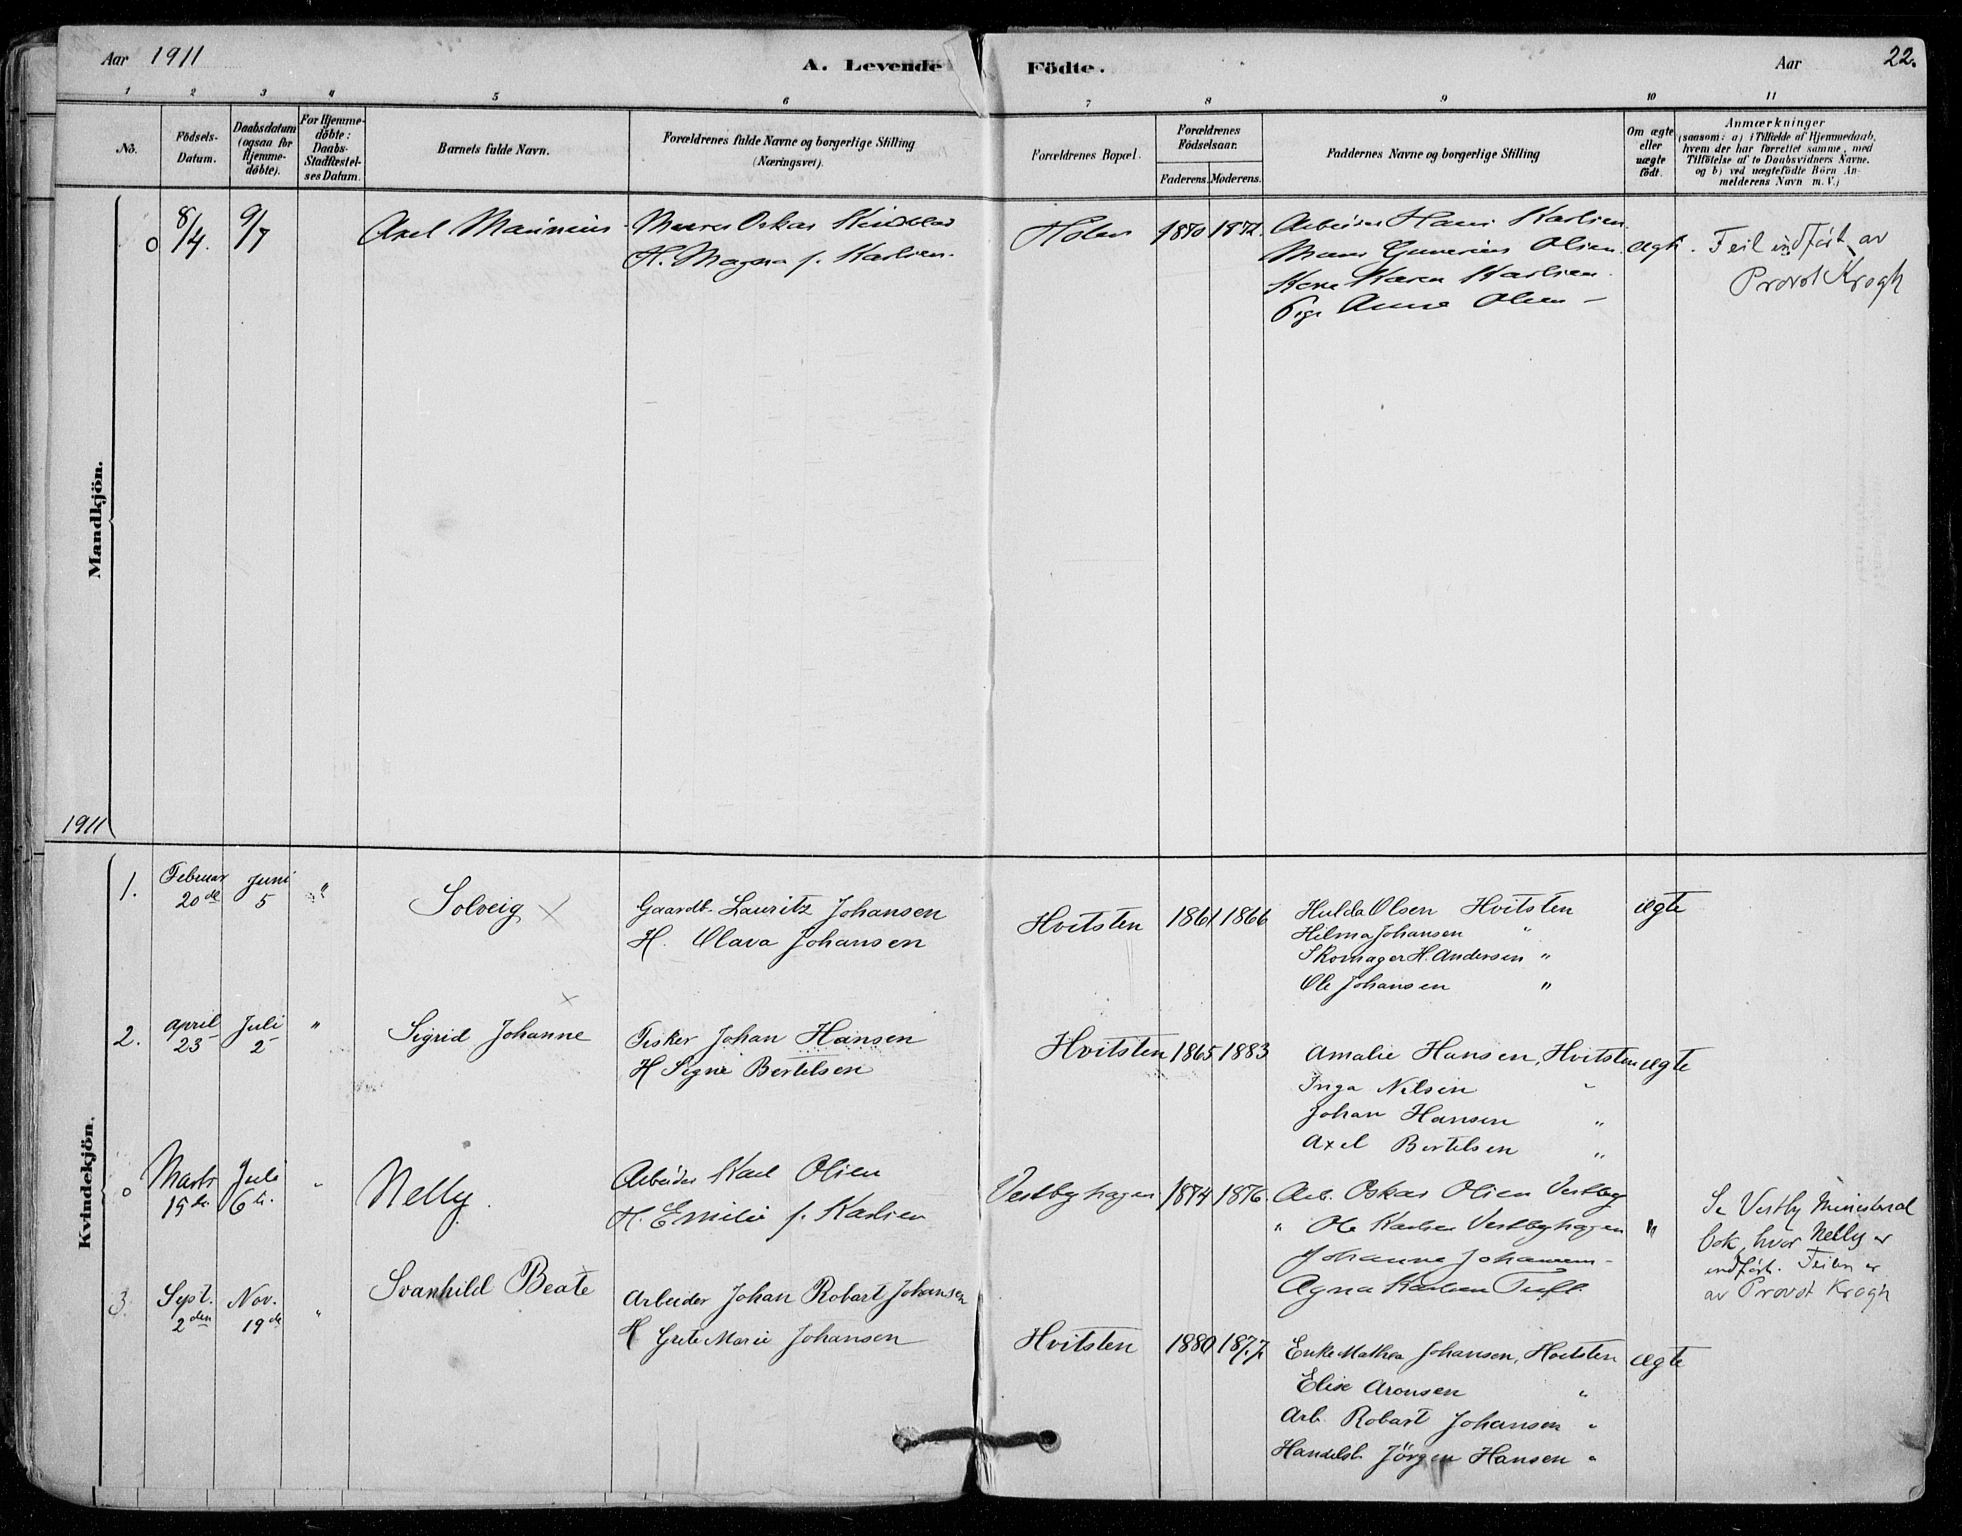 Aar 1911
A. Levende Födte.
Aar
22.
1 2 3 4 5 6 7 8 9 10 11
No.
Födsels-Datum.
Daabsdatum (ogsaa for Hjemme-döbte).
For Hjemme-döbte: Daabs-Stadfæstel-ses Datum.
Barnets fulde Navn.
Forældrenes fulde Navne og borgerlige Stilling (Næringsvei).
Forældrenes Bopæl.
Forældrenes Födselsaar.
Faderens. Moderens.
Faddernes Navne og borgerlige Stilling
Om ægte eller uægte födt.
Anmærkninger
(saasom: a) i Tilfælde af Hjemmedaab,
hvem der har forrettet samme, med
Tilföielse af to Daabsvidners Navne.
og b) ved uægtefödte Börn An-
melderens Navn m. V.)
Mandkjön.
0 8/4. 9/7 Axel Murer Oskar
H. Magna f. Karlsen.
Holen 1870 1872.
Arbeider Hans Karlsen
Gunerius Olsen
Kone Karen Karlsen
Pige Anna Olsen
ægte.
Feil indført av
Provst Krogh
1911
Kvindekjön.
1. Februar 20de Juni 5 "
Solveig
Gaardb. Lauritz Johansen
H. Olava Johansen
Hvitsten 1861 1866
Hulda Olsen Hvitsten
Hilma Johansen "
Skomager H. Andersen "
Ole Johansen "
ægte
2. April 23 Juli 2 "
Sigrid Johanne
Fisker Johan Hansen
H Signe Bertelsen
Hvitsten 1865 1883
Amalie Hansen, Hvitsten
Inga Nilsen "
Johan Hansen "
Axel Bertelsen "
ægte
0 Marts 15de Juli 6te "
Nelly.
Arbeider Karl Olsen
H. Emilie f. Karlsen
Vestbyhagen 1874 1876.
Arb. Oskar Olsen Vestby
" Ole Karlsen Vestbyhagen
Johanne Johansen
Agna Karlsen
"
Se Vestby Ministerial
bok, hvor Nelly er
indført. Feilen er
av Provst Krogh
3. Sept. 2den Nov. 19de "
Svanhild Beate
Arbeider Johan Robart Johansen
H Grete Marie Johansen
Hvitsten 1880 1877.
Enke Mathea Johansen, Hvitsten
Elise Aronsen "
Arb. Robart Johansen "
Handelsb. Jörgen Hansen "
ægte